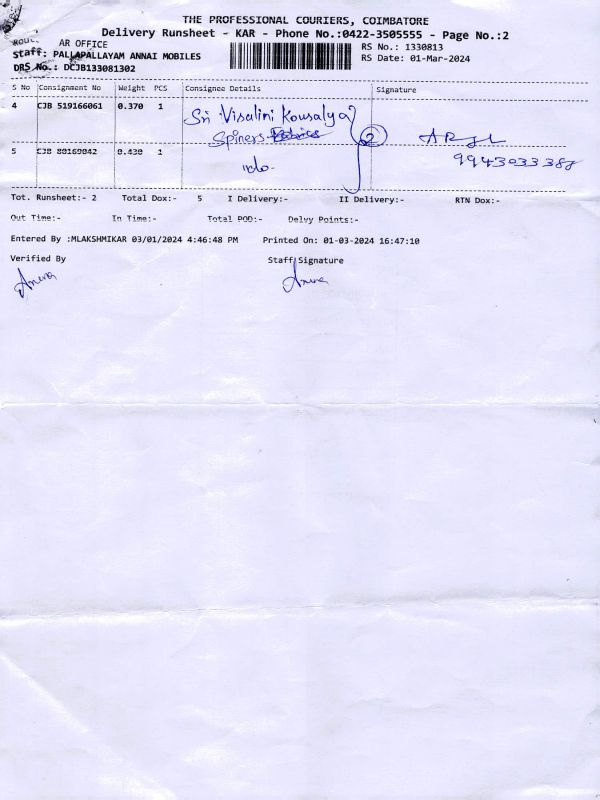 THE PROFESSIONAL COURIERS, COIMBATORE
Delivery Runsheet - KAR - Phone No.:0422-3505555 - Page No.:2
AR OFFICE
Staff: PALLAPALLAYAM ANNAI MOBILES
DRS No.: DCJB133081302
RS No.: 1330813
RS Date: 01-Mar-2024
S No Consignment No Weight PCS Consignee Details Signature
4 CJB 519166061 0.370 1 Sri Visalini Kousalya
Spiners
2
9943033388
5 CJB 80169042 0.430 1
Tot. Runsheet:- 2 Total Dox:- 5 I Delivery:- II Delivery:- RTN Dox:-
Out Time:- In Time:- Total POD:- Delvy Points:-
Entered By :MLAKSHMIKAR 03/01/2024 4:46:48 PM Printed On: 01-03-2024 16:47:10
Verified By Staff Signature